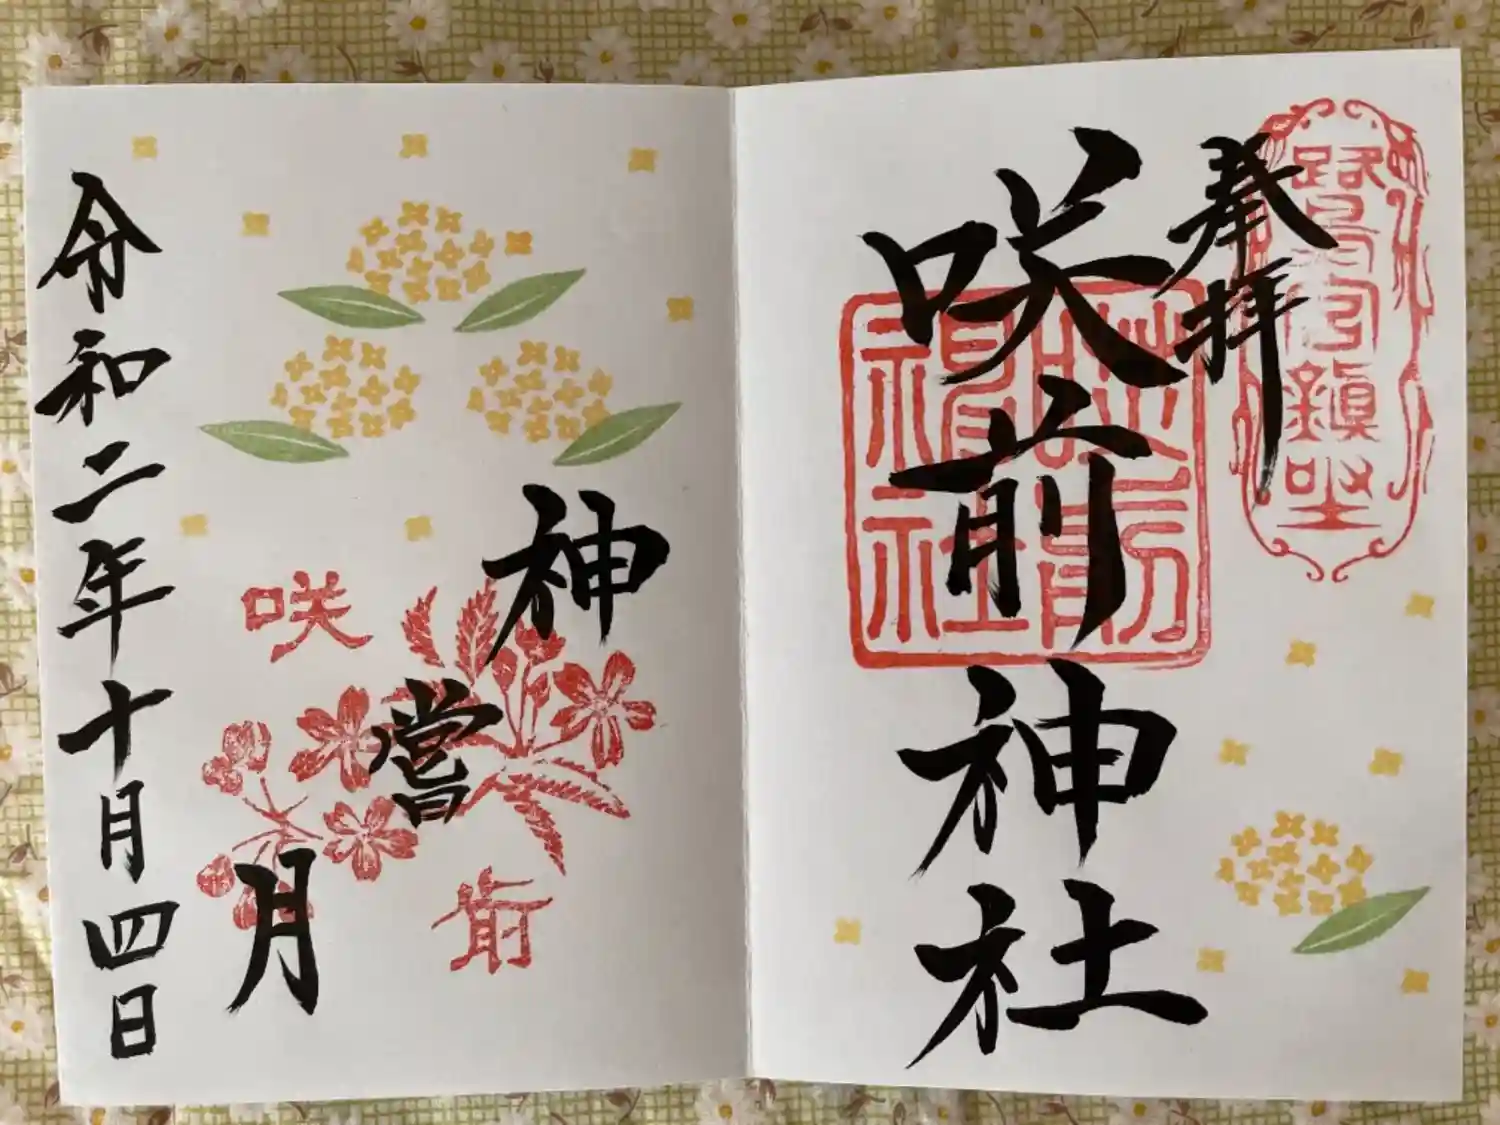 鷺宮鎮坐
奉拝
咲前神社
咲前
神社
神嘗月
咲
前
令和二年十月四日